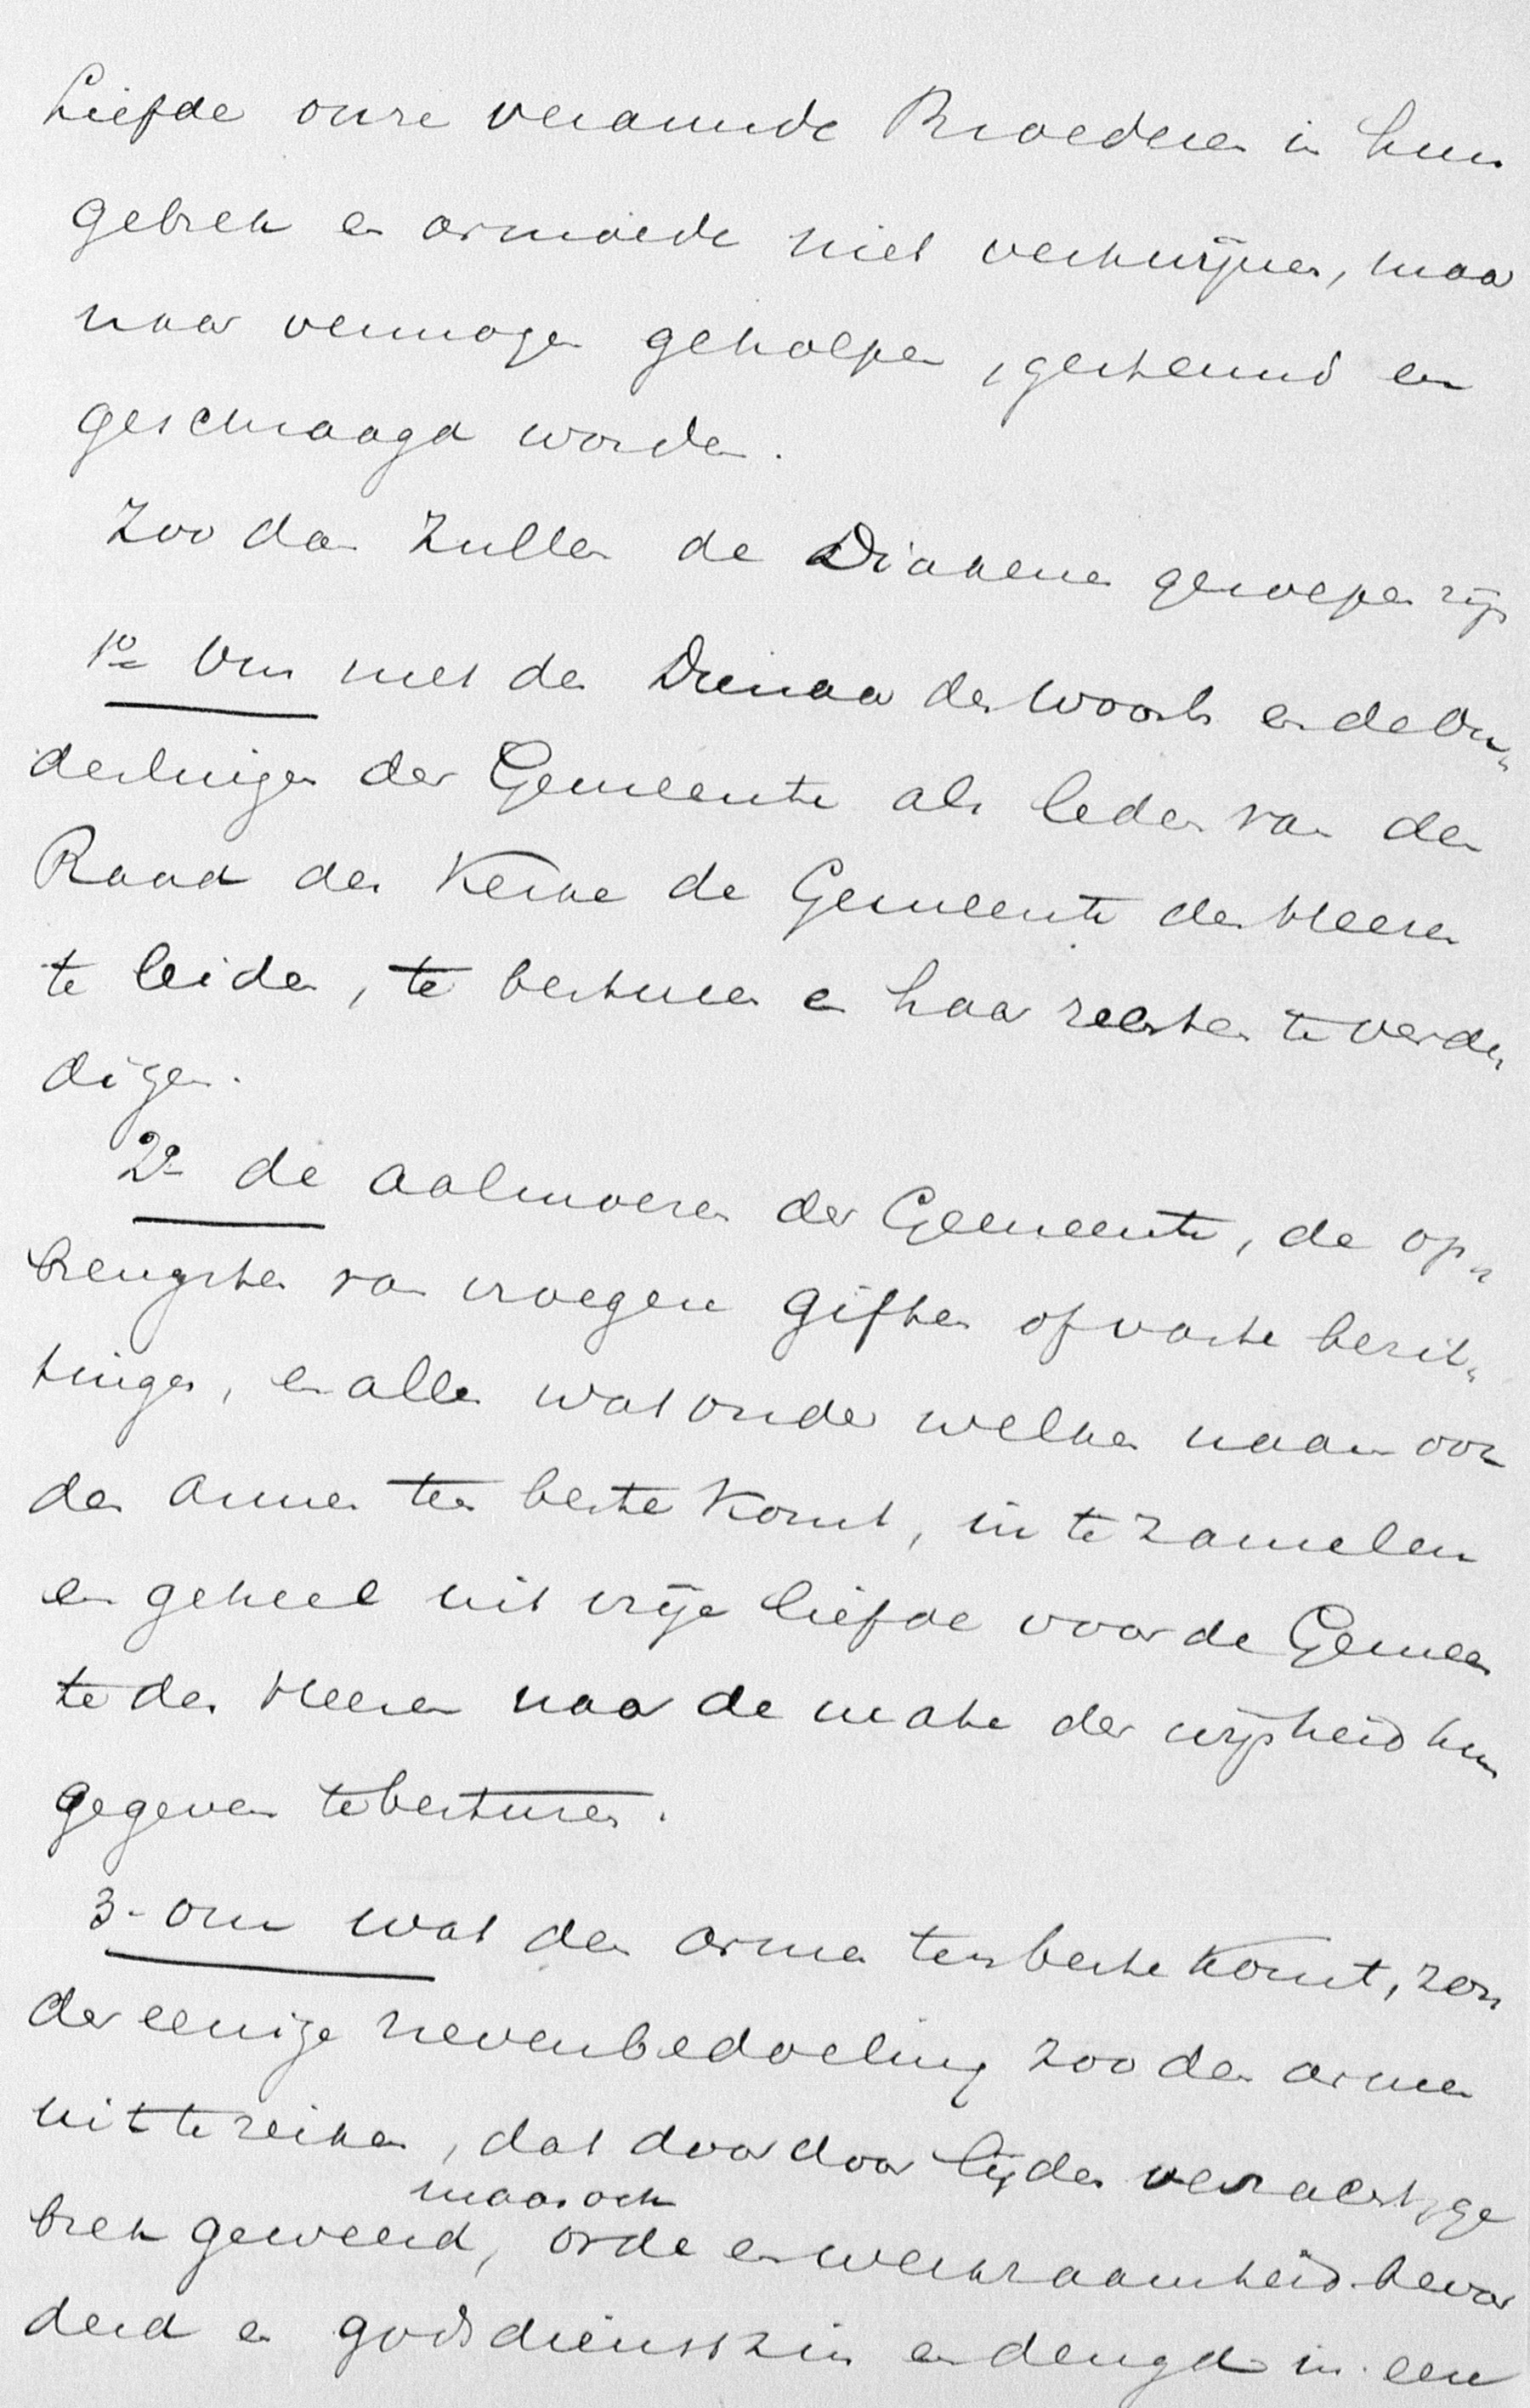 Liefde onze verarmde Broederen in hun
gebrek en armoede niet verkwijnen, maar
naar vermogen geholpen, gesteund en
geschraagd worden.
Zoo dan zullen de Diakenen geroepen zijn
1o Om met den Dienaar des Woords en de Ou„
derlingen der Gemeente als leden van den
Raad der Kerke de Gemeente des Heeren
te leiden, te besturen en haar rechten te verde„
digen.
2o de aalmoezen der Gemeente, de op„
brengsten van vroegere giften of vaste bezit„
tingen, en alles wat onder welken naam ook
den armen ten beste komt, in te zamelen
en geheel uit vrije liefde voor de Gemeen
te des Heeren naar de mate der wijsheid hun
gegeven te besturen.
3- om wat den armen ten beste komt, zon
der eenige nevenbedoeling zoo den armen
uit te reiken, dat daardoor lijden verzacht, ge
maar ook
brek geweerd, orde en werkzaamheid bevor
derd en godsdienstzin en deugd in een